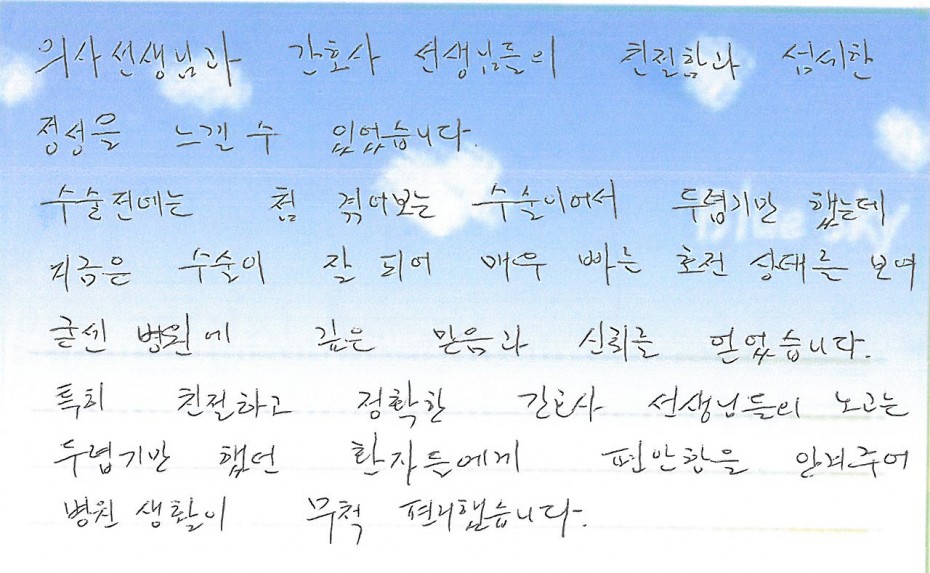 의사선생님과 간호사 선생님들의 친절함과 섬세한
정성을 느낄 수 있었습니다.
수술전에는 첨 겪어보는 수술이어서 두렵기만 했는데
지금은 수술이 잘 되어 매우 빠는 호전 상태를 보여
굴센 병원에 깊은 믿음과 신뢰를 얻었습니다.
특히 친절하고 정확한 간호사 선생님들의 노고는
두렵기만 했던 환자들에게 편안함을 안겨주어
병원 생활이 무척 편리했습니다.
blue sky